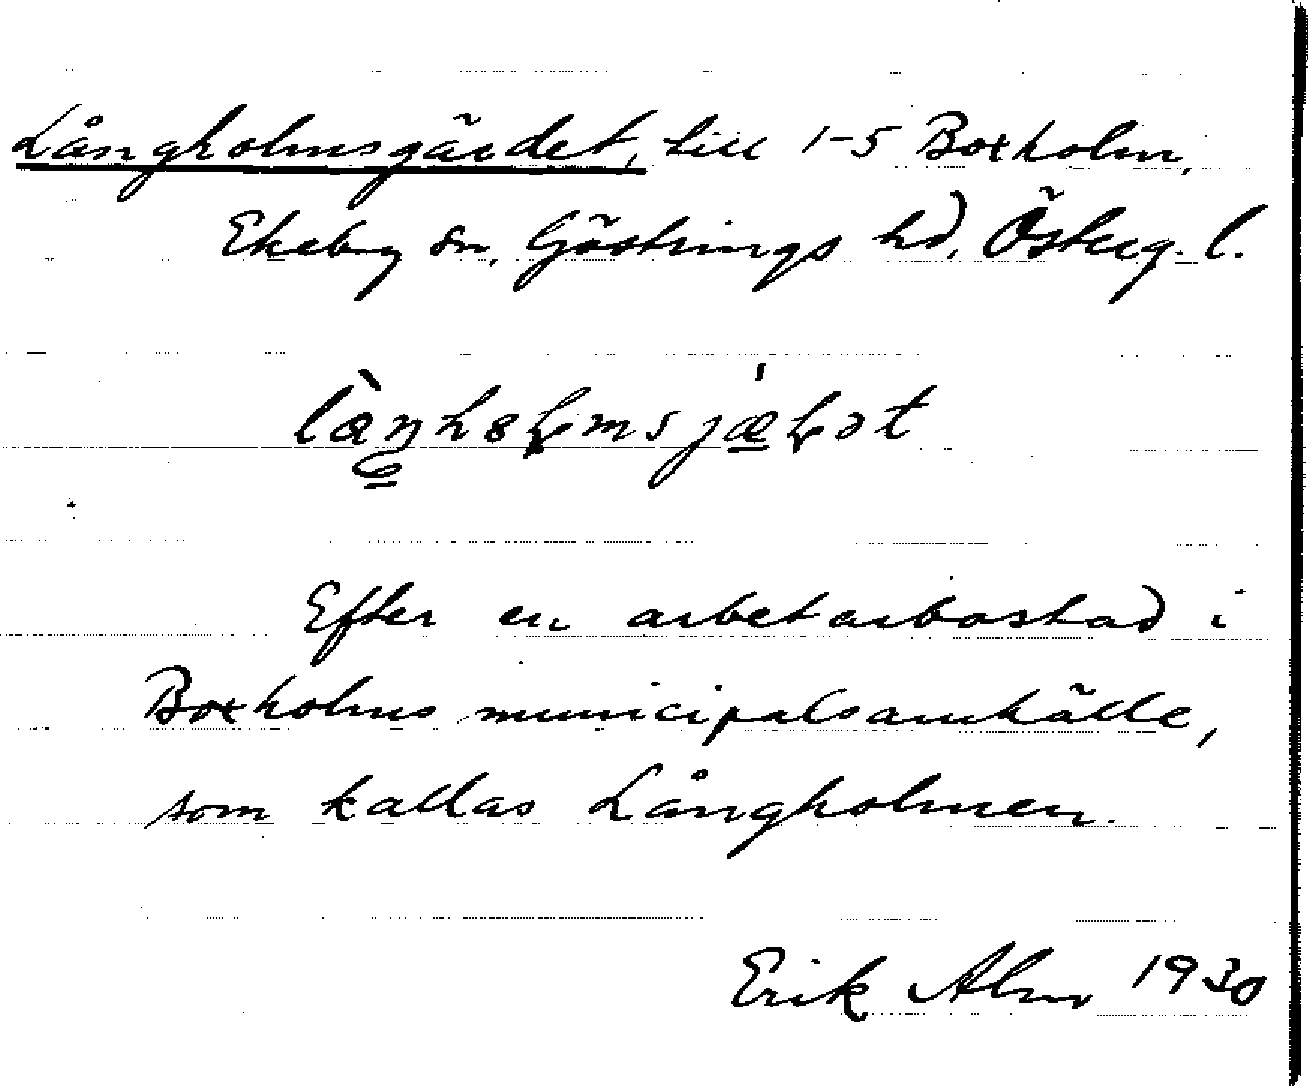 Långholmsgärdet, till 1-5 Boxholm,
Ekeby sn, Göstrings hd, Österg. l.
Efter en arbetarbostad i
Boxholms municipalsamhälle,
som kallas Långholmen.
Erik Alm 1930